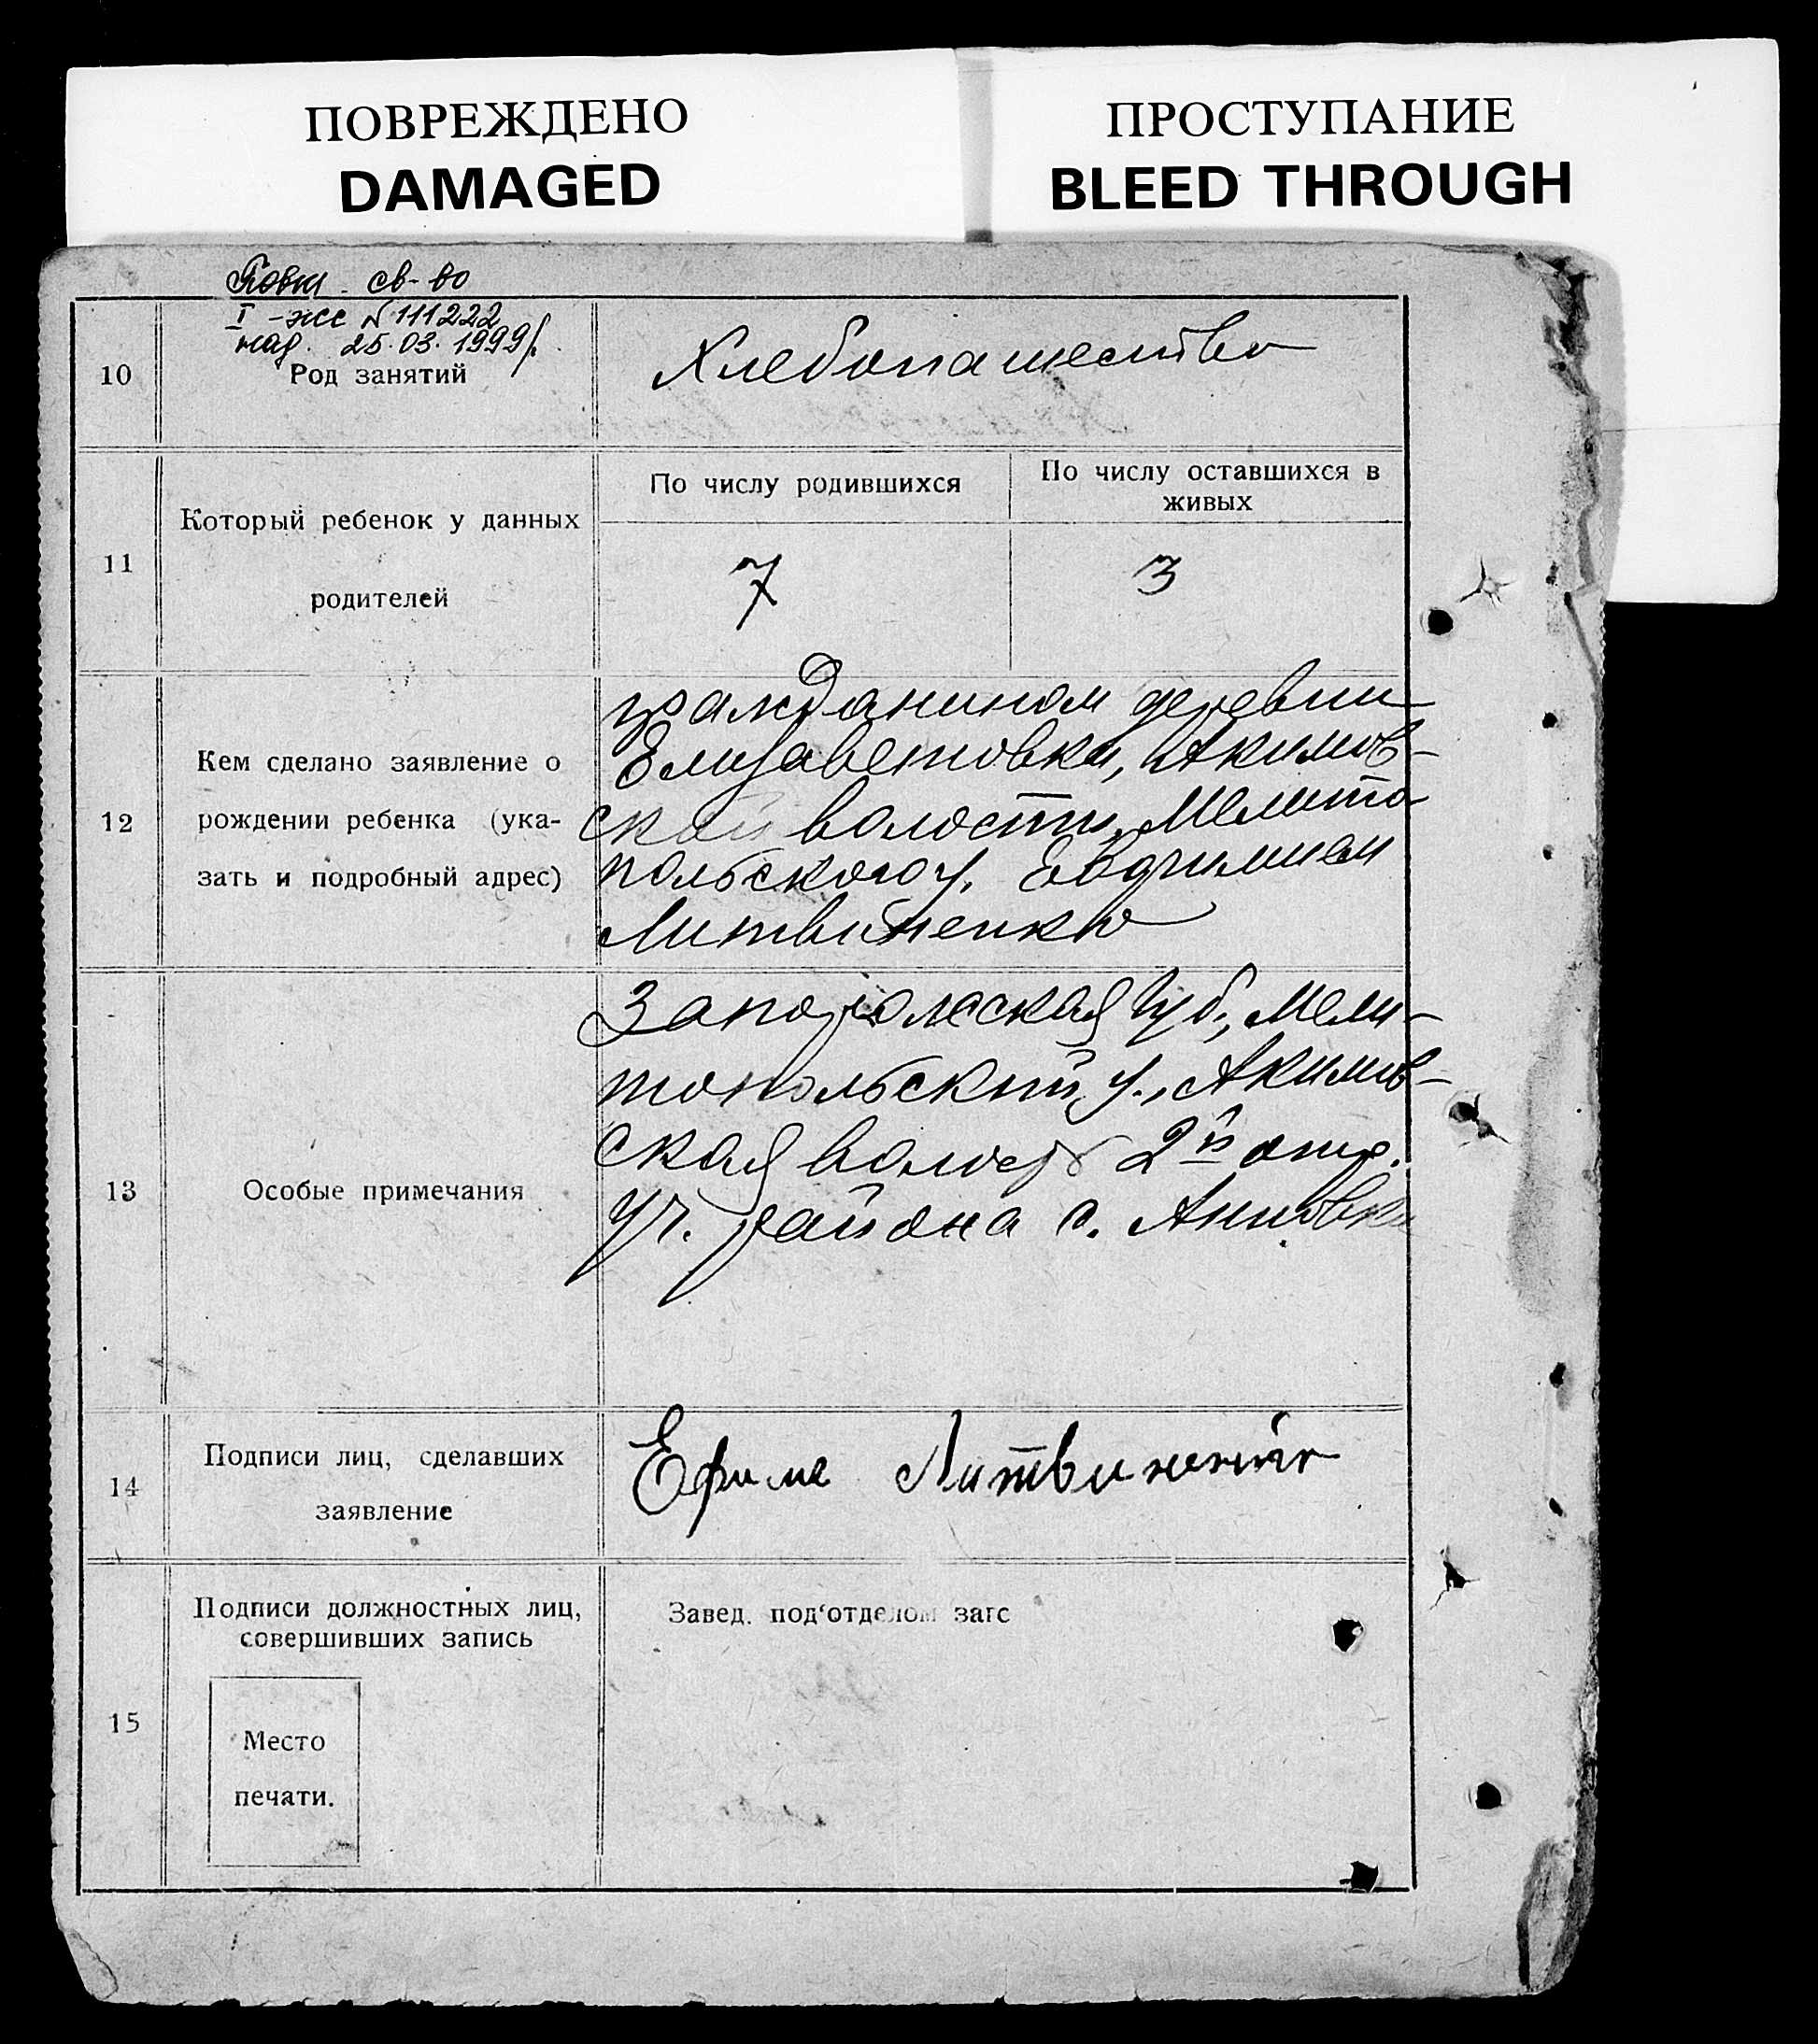 ПОВРЕЖДЕНО
DAMAGED
ПРОСТУПАНИЕ
BLEED THROUGH
св-во
I -жс № 111222
25.03.1999
10
Род занятий
Хлебопашество
11
Который ребенок у данных
родителей
По числу родившихся
По числу оставшихся в
живых
7
3
12
Кем сделано заявление о
рождении ребенка (ука-
зать и подробный адрес)
гражданином деревни
Елизаветовки, Акимов-
ской волости, Мелито
польского у.
Литвиненко
13
Особые примечания
губ., Мели-
топольский у., Акимов-
ская волость 2й отд.
уч. района с. Анновка
14
Подписи лиц, сделавших
заявление
Ефим Литвиненко
15
Подписи должностных лиц,
совершивших запись
Завед. под‘отделом загс
Место
печати.